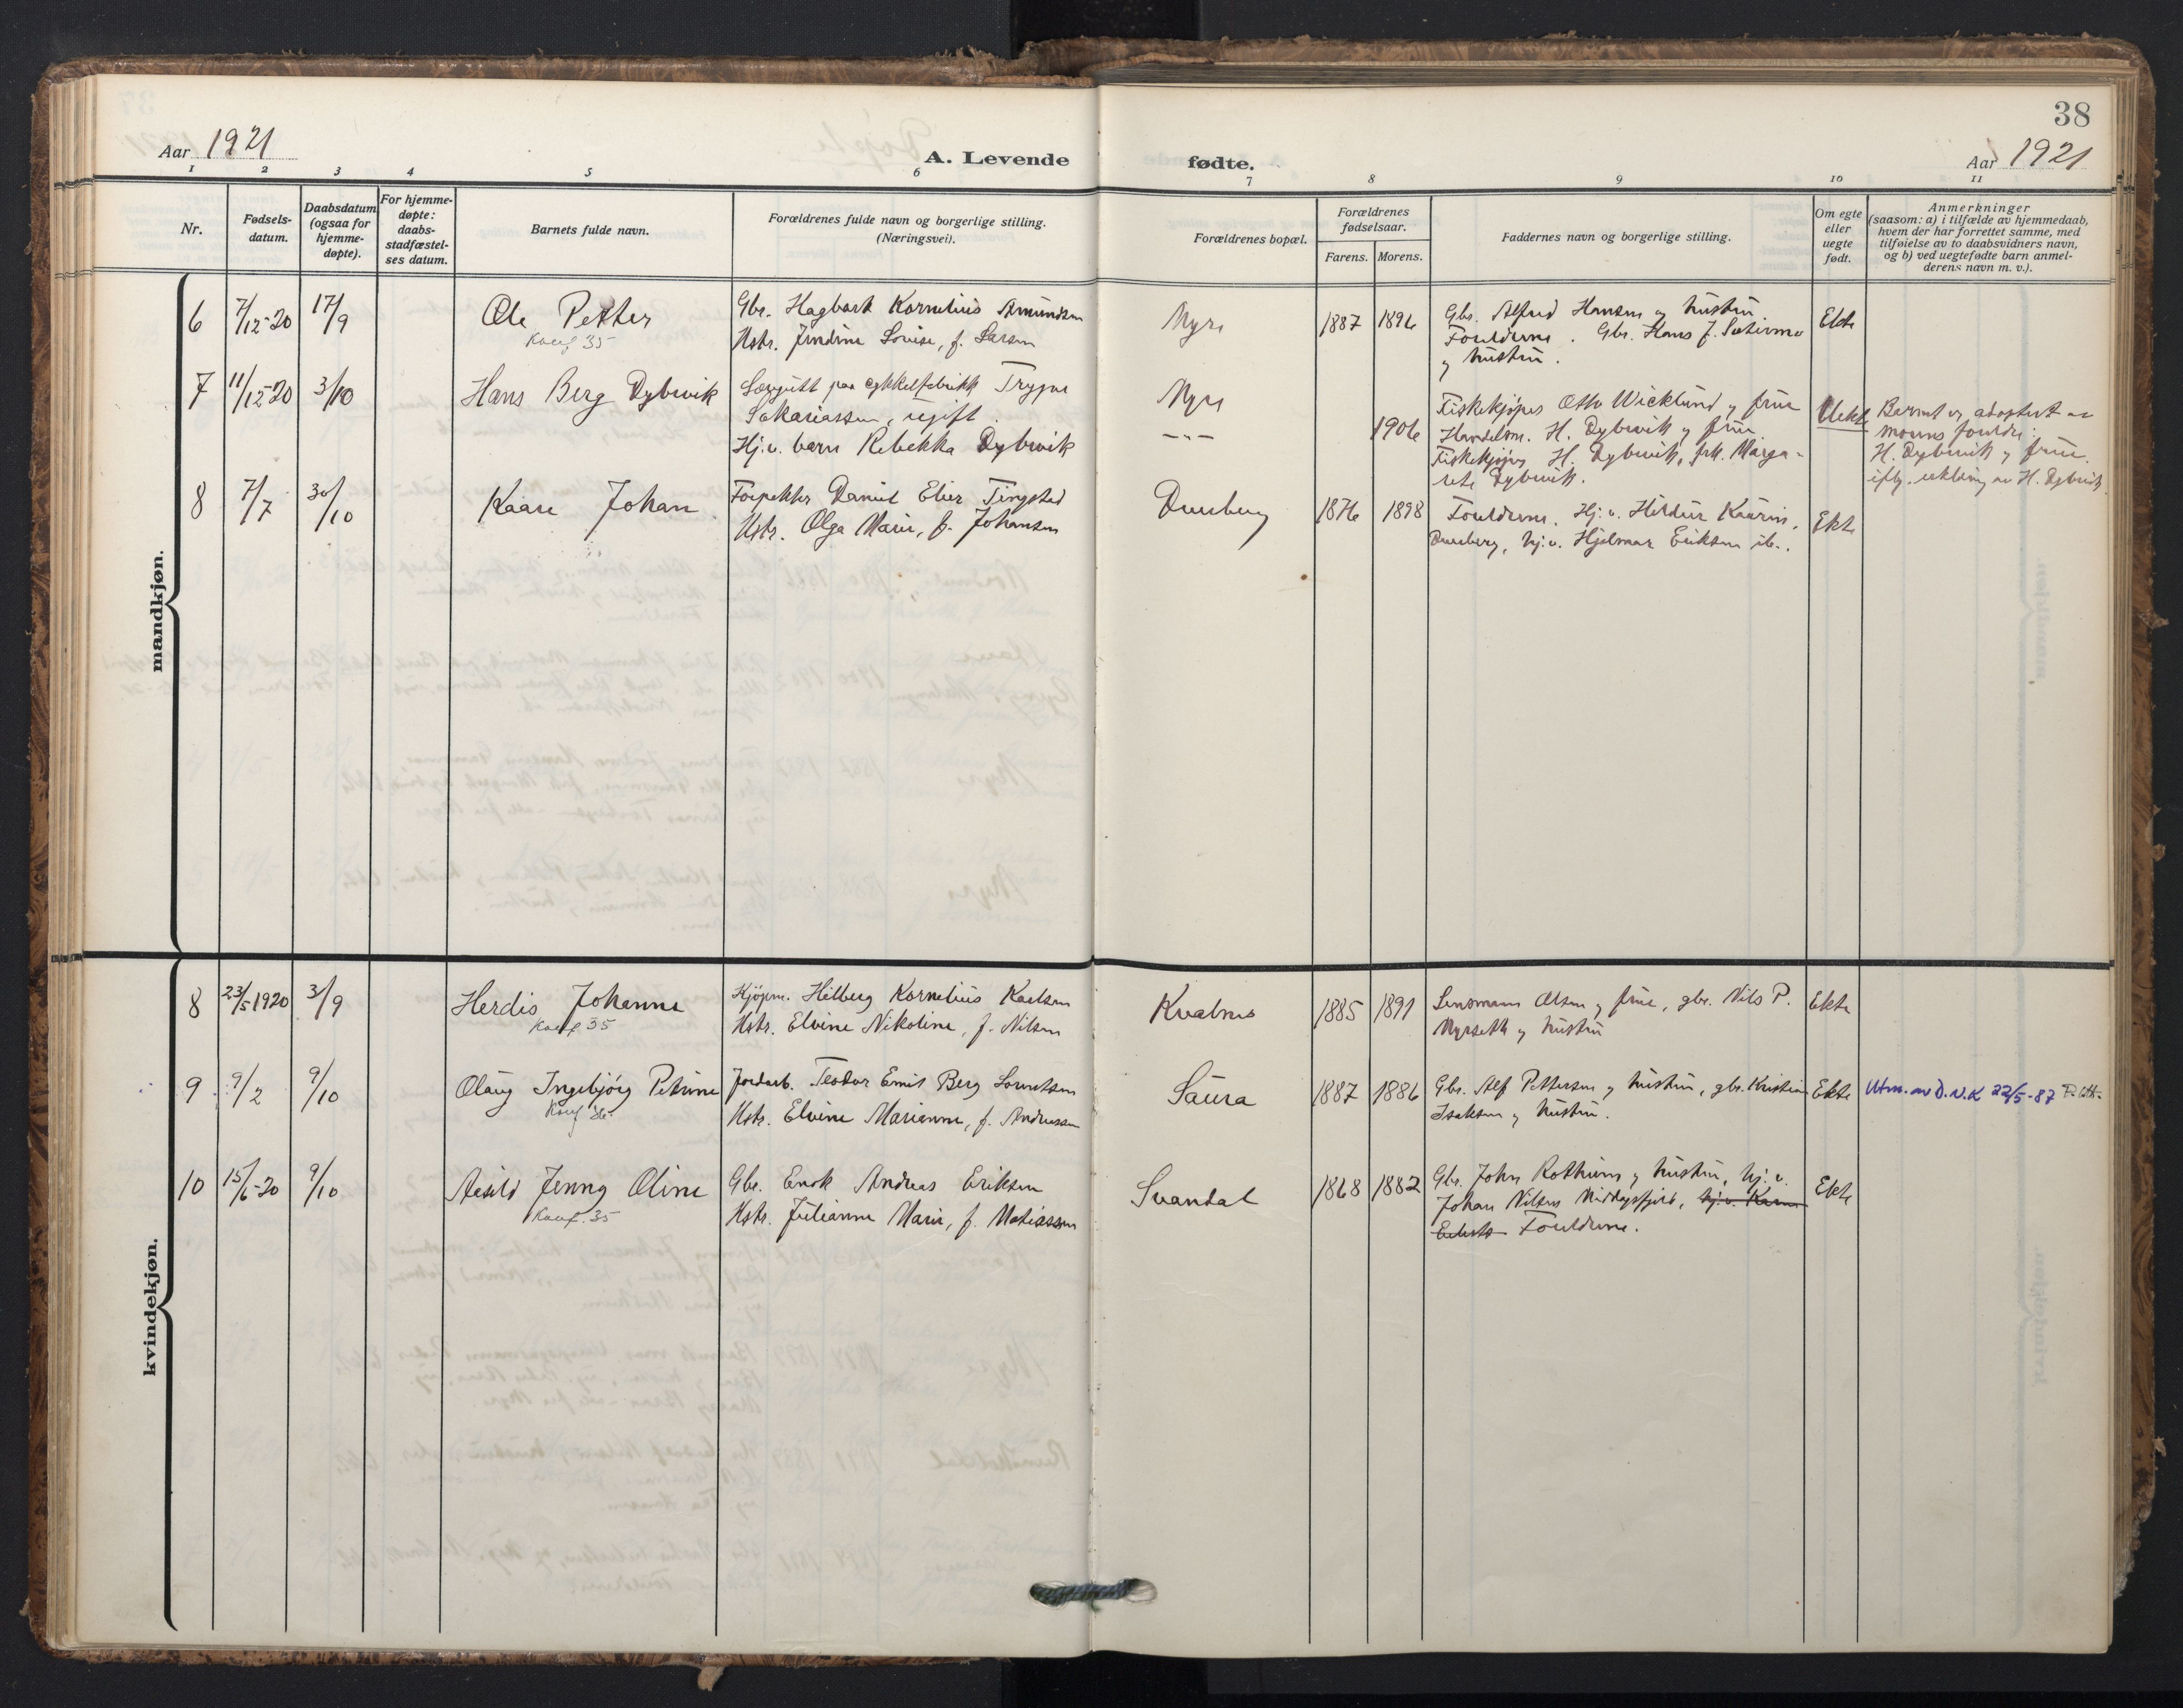 38
Aar 1921
A. Levende fødte.
Aar 1921
1 2 3 4 5 6 7 8 9 10 11
Nr.
Fødsels-
datum.
Daabsdatum
(ogsaa for
hjemme-
døpte).
For hjemme-
døpte:
daabs-
stadfæstel-
ses datum.
Barnets fulde navn.
Forældrenes fulde navn og borgerlige stilling.
(Næringsvei).
Forældrenes bopæl.
Forældrenes
fødselsaar.
Farens. Morens.
Faddernes navn og borgerlige stilling.
Om egte
eller
uegte
født.
Anmerkninger
(saasom: a) i tilfælde av hjemmedaab,
hvem der har forrettet samme, med
tilføielse av to daabsvidners navn,
og b) ved uegtefødte barn anmel-
derens navn m. v.).
mandkjøn.
6 7/12-20 17/9 Ole Petter
Konf 35
Gbr. Hagbart Kornelius Amundsen
Hstr. Jendine Lovise, f. Larsen
Myre 1887 1896
Gbr. Alfred Hansen og hustru
Forældrene. Gbr. Hans J.
og hustru.
Ekte
7 11/12-20 3/10 Hans Berg Dybwik
paa Trygve
Sakariassen, ugift.
Hj.v. barn Rebekka Dybwik
Myre
— " — 1906
Fiskekjøper Otto Wicklund og frue
Handelsm. H. Dybwik og frue
Fiskekjøper H. Dybwik, frk. Marga-
rete Dybwik.
Uekte
Barnet er adoptert av
morens foreldre:
H. Dybwik og frue
iflg. erklæring av H. Dybwik.
8 7/7 30/10 Kaare Johan
Daniel Elier Tingstad
Hstr. Olga Marie, f. Johansen
1876 1898
Forældrene. Hj.v.
hj.v. Hjelmar Eriksen ib.
Ekte
kvindekjøn.
8 23/5 1920 3/9 Herdis Johanne
Konf 35
Kjøpm. Hilberg Kornelius Karlsen
Hstr. Elvine Nikoline, f. Nilsen
Kvalnes 1885 1891
Lensmann Olsen og frue, gbr. Nils P.
Myrseth og hustru
Ekte
9 9/2 9/10 Olaug Ingebjørg Petrine
Konf 36
Jordarb. Teodor Emil Berg Lorentsen
Hstr. Elvine Marianne, f. Andreassen
Saura 1887 1886
Gbr. Alf Pettersen og hustru, gbr. Kristian
Isaksen og hustru.
Ekte
Utm. av D.N.K 22/5-87
10 15/6-20 9/10 Aasild Jenny Oline
Konf. 35
Gbr. Enok Andreas Eriksen
Hstr. Julianne Marie, f. Matiassen
Svandal 1868 1882
Gbr. John og hustru, hj.v.
Johan Nilsen Middagsfjord, hj.v.
Forældrene.
Ekte